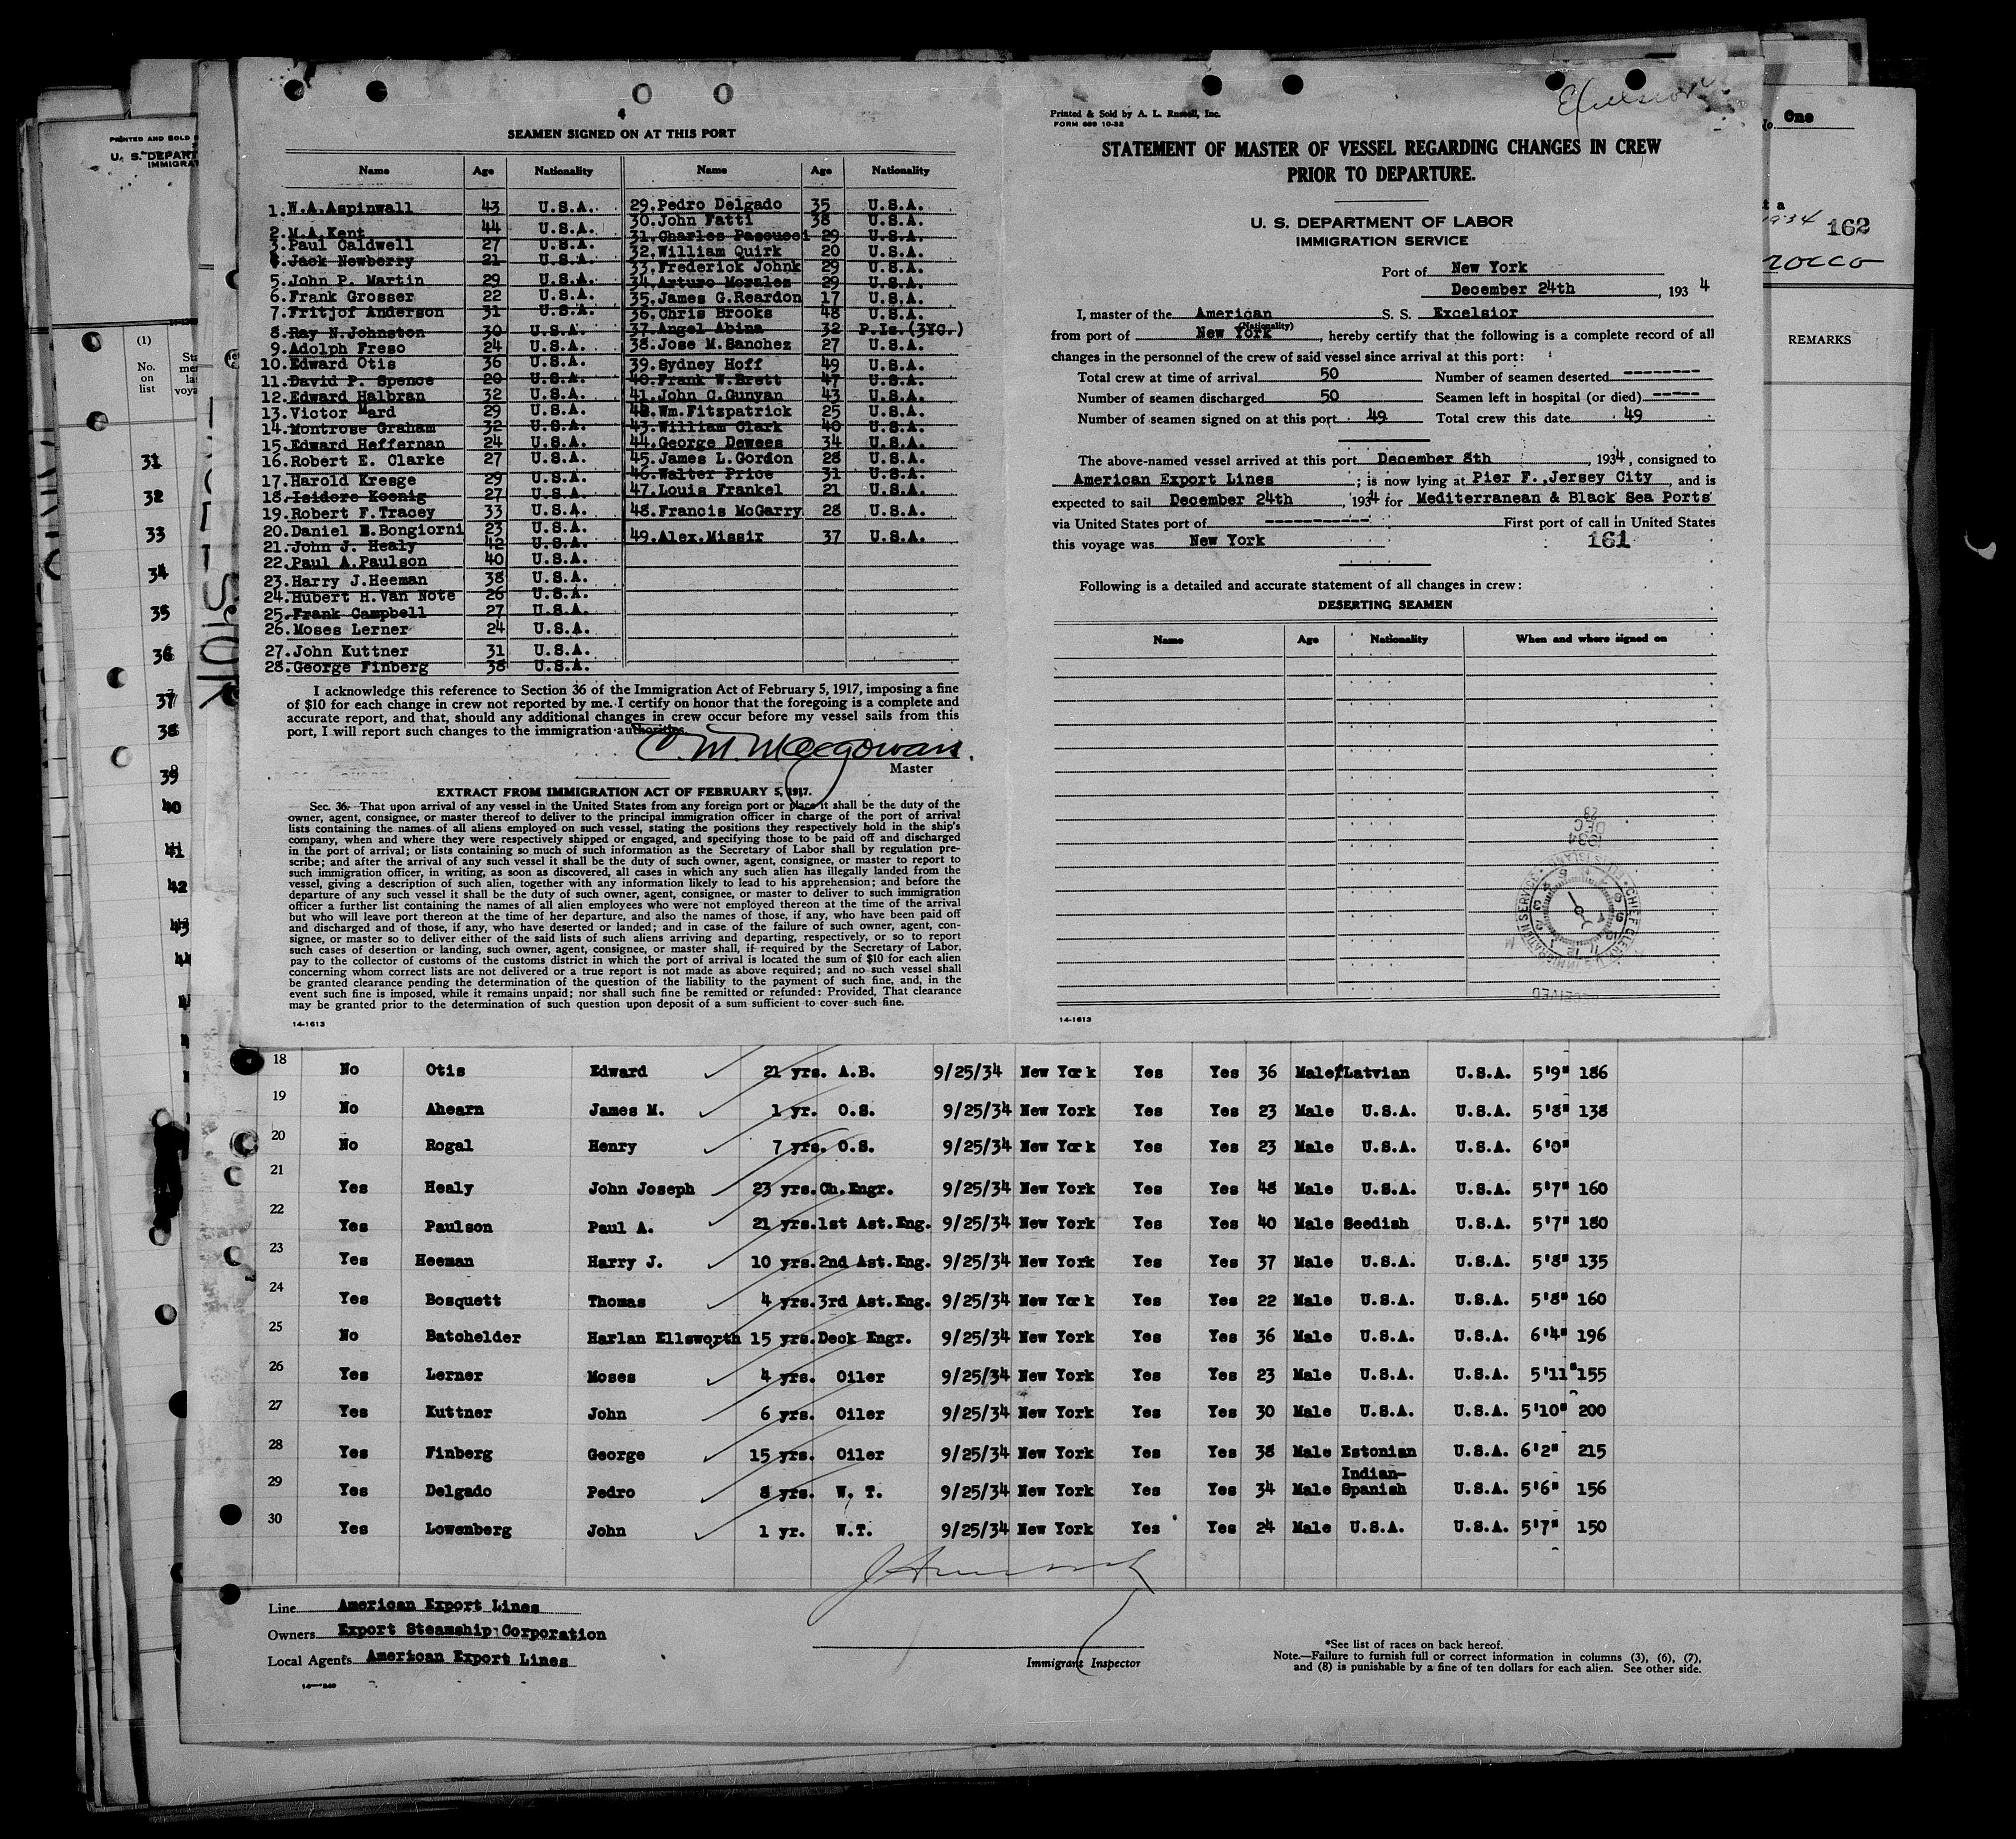 4
SEAMEN SIGNED ON AT THIS PORT
Name Age Nationality Name Age Nationality
1. W.A.Aspinwall 43 U.S.A. 29. Pedro Delgado 35 U.S.A.
2. M.A.Kent 44 U.S.A. 30. John Fatti 38 U.S.A.
3. Paul Caldwell 27 U.S.A. 31. Charles Pascucci 29 U.S.A.
4. Jack Newberry 21 U.S.A. 32. William Quirk 20 U.S.A.
5. John P. Martin 29 U.S.A. 33. Frederick Johnk 29 U.S.A.
6. Frank Grosser 22 U.S.A. 34. Arturo Morales 29 U.S.A.
7. Fritjof Anderson 31 U.S.A. 35. James G.Reardon 17 U.S.A.
8. Ray N.Johnston 30 U.S.A. 36. Chris Brooks 48 U.S.A.
9. Adolph Freso 24 U.S.A. 37. Angel Abina 32 P.Is.(3YC.)
10. Edward Otis 36 U.S.A. 38. Jose M.Sanchez 27 U.S.A.
11. David P. Spence 20 U.S.A. 39. Sydney Hoff 49 U.S.A.
12. Edward Halbran 32 U.S.A. 40. Frank W.Brett 47 U.S.A.
13. Victor Mard 29 U.S.A. 41. John C.Gunyan 43 U.S.A.
14. Montrose Graham 32 U.S.A. 42. Wm.Fitzpatrick 25 U.S.A.
15. Edward Heffernan 24 U.S.A. 43. William Clark 40 U.S.A.
16. Robert E. Clarke 27 U.S.A. 44. George Dewees 34 U.S.A.
17. Harold Kresge 29 U.S.A. 45. James L.Gordon 28 U.S.A.
18. Isidore Koenig 27 U.S.A. 46. Walter Price 31 U.S.A.
19. Robert F.Tracey 33 U.S.A. 47. Louis Frankel 21 U.S.A.
20. Daniel E.Bongiorni 23 U.S.A. 48. Francis McGarry 28 U.S.A.
21. John J. Healy 42 U.S.A. 49. Alex.Missir 37 U.S.A.
22. Paul A.Paulson 40 U.S.A.
23. Harry J.Heeman 38 U.S.A.
24. Hubert H.Van Note 26 U.S.A.
25. Frank Campbell 27 U.S.A.
26. Moses Lerner 24 U.S.A.
27. John Kuttner 31 U.S.A.
28. George Finberg 38 U.S.A.
I acknowledge this reference to Section 36 of the Immigration Act of February 5, 1917, imposing a fine
of $10 for each change in crew not reported by me. I certify on honor that the foregoing is a complete and
accurate report, and that, should any additional changes in crew occur before my vessel sails from this
port, I will report such changes to the immigration authorities.
C. M. Macgowan
Master
EXTRACT FROM IMMIGRATION ACT OF FEBRUARY 5, 1917.
Sec. 36. That upon arrival of any vessel in the United States from any foreign port or place it shall be the duty of the
owner, agent, consignee, or master thereof to deliver to the principal immigration officer in charge of the port of arrival
lists containing the names of all aliens employed on such vessel, stating the positions they respectively hold in the ship's
company, when and where they were respectively shipped or engaged, and specifying those to be paid off and discharged
in the port of arrival; or lists containing so much of such information as the Secretary of Labor shall by regulation pre-
scribe; and after the arrival of any such vessel it shall be the duty of such owner, agent, consignee, or master to report to
such immigration officer, in writing, as soon as discovered, all cases in which any such alien has illegally landed from the
vessel, giving a description of such alien, together with any information likely to lead to his apprehension; and before the
departure of any such vessel it shall be the duty of such owner, agent, consignee, or master to deliver to such immigration
officer a further list containing the names of all alien employees who were not employed thereon at the time of the arrival
but who will leave port thereon at the time of her departure, and also the names of those, if any, who have been paid off
and discharged and of those, if any, who have deserted or landed; and in case of the failure of such owner, agent, con-
signee, or master so to deliver either of the said lists of such aliens arriving and departing, respectively, or so to report
such cases of desertion or landing, such owner, agent, consignee, or master shall, if required by the Secretary of Labor,
pay to the collector of customs of the customs district in which the port of arrival is located the sum of $10 for each alien
concerning whom correct lists are not delivered or a true report is not made as above required; and no such vessel shall
be granted clearance pending the determination of the question of the liability to the payment of such fine, and, in the
event such fine is imposed, while it remains unpaid; nor shall such fine be remitted or refunded: Provided, That clearance
may be granted prior to the determination of such question upon deposit of a sum sufficient to cover such fine.
14-1613
Excelsior
Printed & Sold by A. L. Russell, Inc.
FORM 689 10-32
STATEMENT OF MASTER OF VESSEL REGARDING CHANGES IN CREW
PRIOR TO DEPARTURE.
U. S. DEPARTMENT OF LABOR
IMMIGRATION SERVICE
Port of New York
December 24th, 1934
I, master of the American S. S. Excelsior
(Nationality)
from port of New York, hereby certify that the following is a complete record of all
changes in the personnel of the crew of said vessel since arrival at this port:
Total crew at time of arrival 50 Number of seamen deserted --------
Number of seamen discharged 50 Seamen left in hospital (or died) -----
Number of seamen signed on at this port 49 Total crew this date 49
The above-named vessel arrived at this port December 8th, 1934, consigned to
American Export Lines; is now lying at Pier F., Jersey City, and is
expected to sail December 24th, 1934 for Mediterranean & Black Sea Ports
via United States port of ----------- First port of call in United States
this voyage was New York
161
Following is a detailed and accurate statement of all changes in crew:
DESERTING SEAMEN
Name Age Nationality When and where signed on
28
DEC
1934
CHIEF CLERK U.S. IMMIGRATION SERVICE ELLIS ISLAND
RECEIVED
14-1613
PRINTED AND SOLD
U. S. DEPART
IMMIGRA
(1)
No.
on
list
31
32
33
34
35
36
37
38
39
40
41
42
43
44
No. One
1934 162
rocco
REMARKS
18 No Otis Edward 21 yrs. A.B. 9/25/34 New York Yes Yes 36 Male Latvian U.S.A. 5'9" 186
19 No Ahearn James M. 1 yr. O.S. 9/25/34 New York Yes Yes 23 Male U.S.A. U.S.A. 5'8" 138
20 No Rogal Henry 7 yrs. O.S. 9/25/34 New York Yes Yes 23 Male U.S.A. U.S.A. 6'0"
21 Yes Healy John Joseph 23 yrs. Ch.Engr. 9/25/34 New York Yes Yes 48 Male U.S.A. U.S.A. 5'7" 160
22 Yes Paulson Paul A. 21 yrs. 1st Ast.Eng. 9/25/34 New York Yes Yes 40 Male Seedish U.S.A. 5'7" 180
23 Yes Heeman Harry J. 10 yrs. 2nd Ast.Eng. 9/25/34 New York Yes Yes 37 Male U.S.A. U.S.A. 5'8" 135
24 Yes Bosquett Thomas 4 yrs. 3rd Ast.Eng. 9/25/34 New York Yes Yes 22 Male U.S.A. U.S.A. 5'8" 160
25 No Batchelder Harlan Ellsworth 15 yrs. Deck Engr. 9/25/34 New York Yes Yes 36 Male U.S.A. U.S.A. 6'4" 196
26 Yes Lerner Moses 4 yrs. Oiler 9/25/34 New York Yes Yes 23 Male U.S.A. U.S.A. 5'11" 155
27 Yes Kuttner John 6 yrs. Oiler 9/25/34 New York Yes Yes 30 Male U.S.A. U.S.A. 5'10" 200
28 Yes Finberg George 15 yrs. Oiler 9/25/34 New York Yes Yes 38 Male Estonian U.S.A. 6'2" 215
29 Yes Delgado Pedro 8 yrs. W. T. 9/25/34 New York Yes Yes 34 Male Indian-Spanish U.S.A. 5'6" 156
30 Yes Lowenberg John 1 yr. W.T. 9/25/34 New York Yes Yes 24 Male U.S.A. U.S.A. 5'7" 150
Line American Export Lines
Owners Export Steamship Corporation
Local Agents American Export Lines
Immigrant Inspector
*See list of races on back hereof.
Note.—Failure to furnish full or correct information in columns (3), (6), (7),
and (8) is punishable by a fine of ten dollars for each alien. See other side.